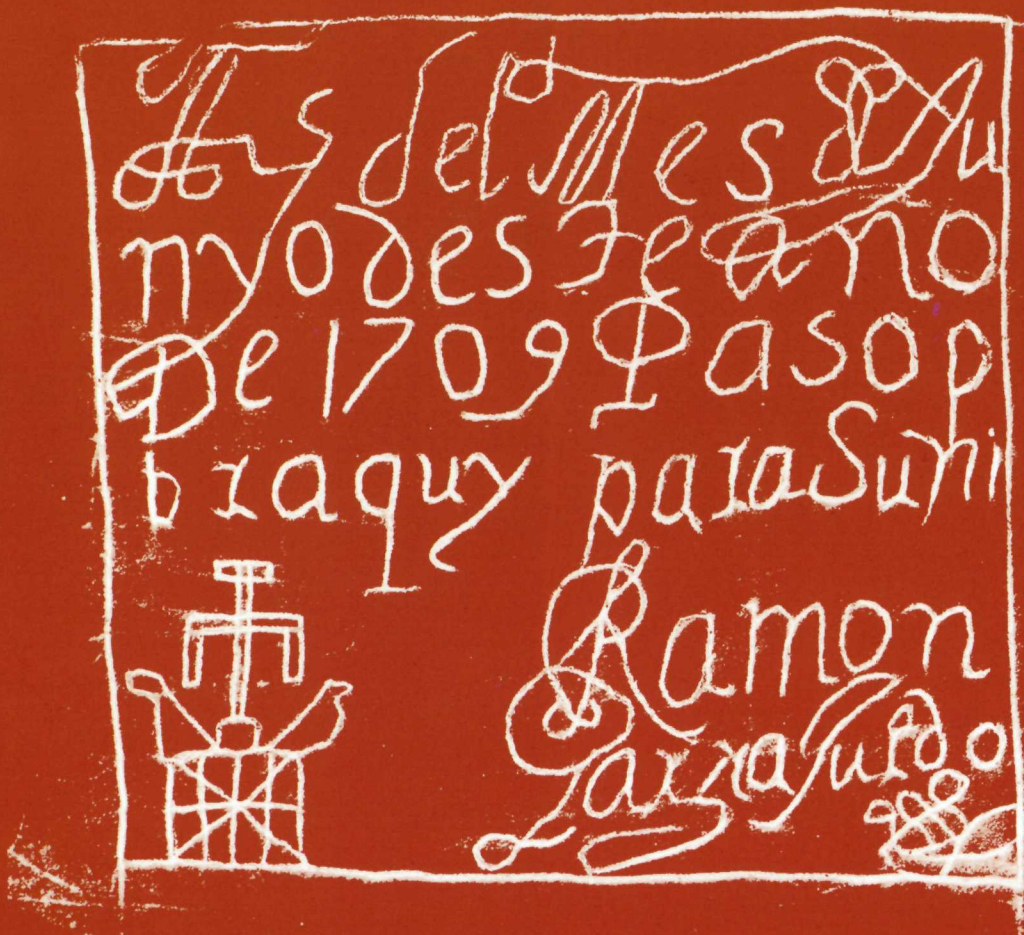 del Mes d Ju
nyo deste año
De 1709 Paso p
or aquy para Suñi
Ramon
Garzia Jurado